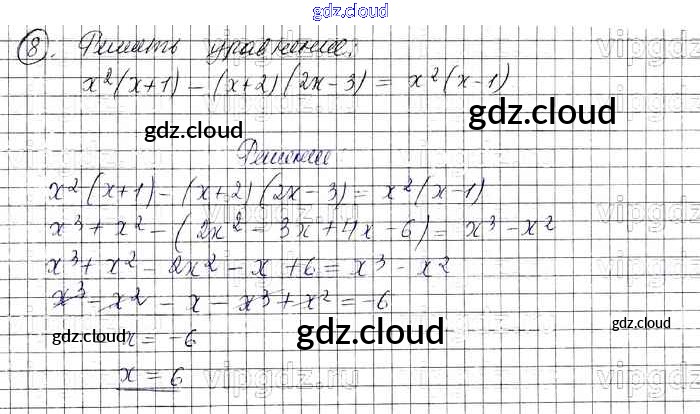 gdz.cloud
8. Решить уравнение:
x²(x+1) - (x+2)(2x-3) = x²(x-1)
gdz.cloud gdz.cloud
Решение
x²(x+1) - (x+2)(2x-3) = x²(x-1)
x³ + x² - (2x² - 3x + 4x - 6) = x³ - x²
x³ + x² - 2x² - x + 6 = x³ - x²
x³ - x² - x - x³ + x² = -6
gdz.cloud -x = -6 gdz.cloud gdz.cloud
x = 6
vipgdz.ru